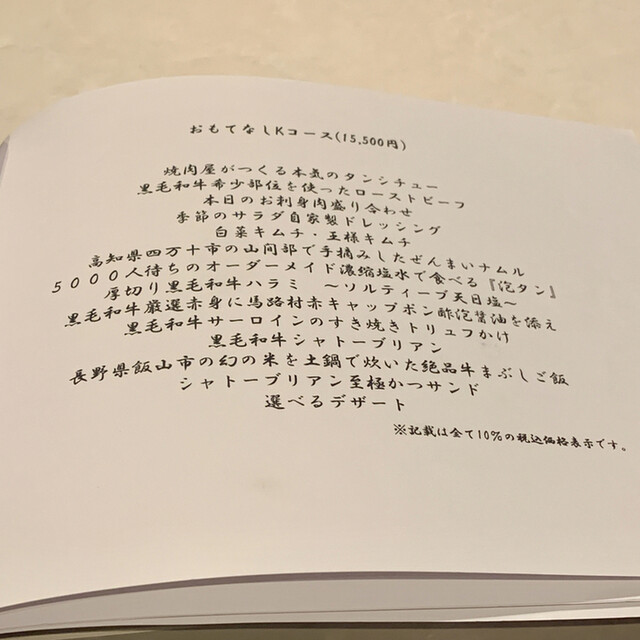 おもてなしKコース(15,500円)
焼肉屋がつくる本気のタンシチュー
黒毛和牛希少部位を使ったローストビーフ
本日のお刺身肉盛り合わせ
季節のサラダ自家製ドレッシング
白菜キムチ・王様キムチ
高知県四万十市の山間部で手摘みしたぜんまいナムル
5000人待ちのオーダーメイド濃縮塩水で食べる『泡タン』
厚切り黒毛和牛ハラミ 〜ソルティーブ天日塩〜
黒毛和牛厳選赤身に馬路村赤キャップポン酢泡醤油を添え
黒毛和牛サーロインのすき焼きトリュフかけ
黒毛和牛シャトーブリアン
長野県飯山市の幻の米を土鍋で炊いた絶品牛まぶしご飯
シャトーブリアン至極かつサンド
選べるデザート
※記載は全て10%の税込価格表示です。